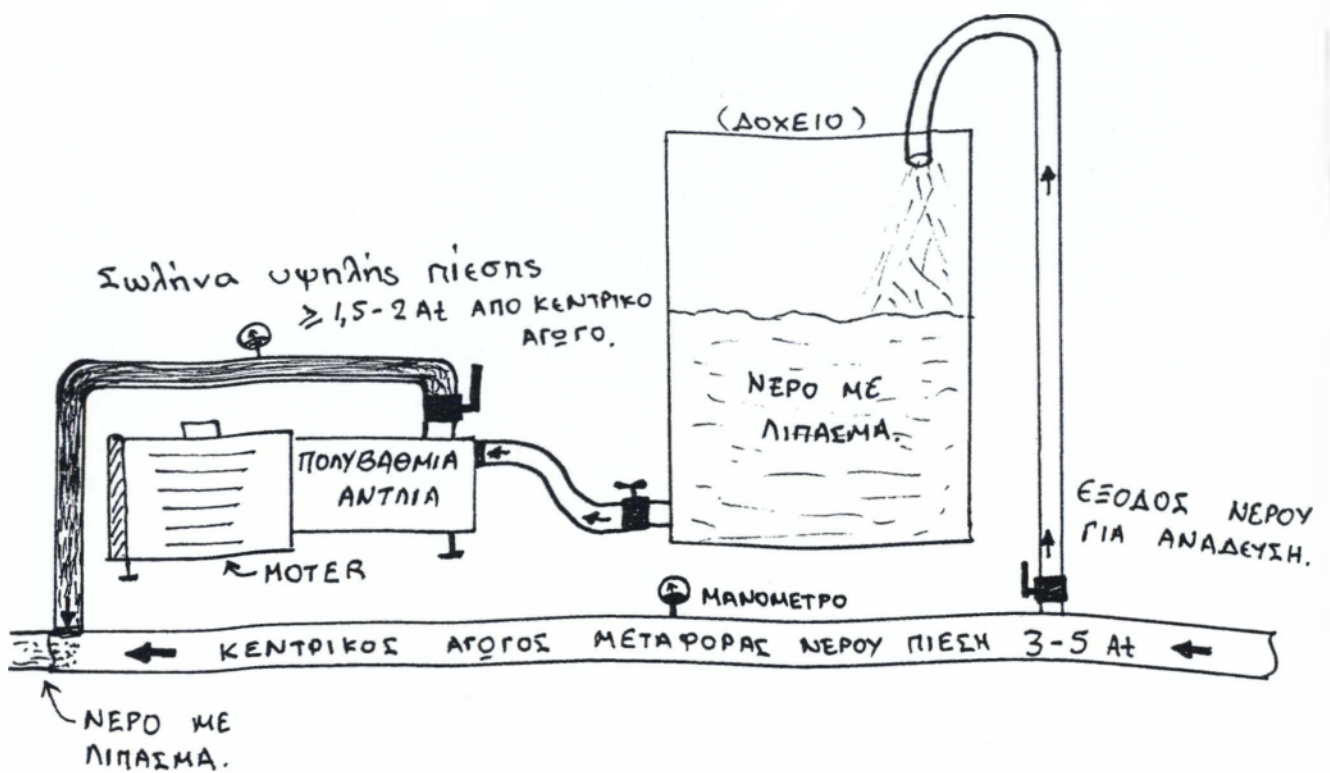 (ΔΟΧΕΙΟ)
Σωλήνα υψηλής πίεσης
≥ 1,5-2 At ΑΠΟ ΚΕΝΤΡΙΚΟ
ΑΓΩΓΟ.
ΝΕΡΟ ΜΕ
ΛΙΠΑΣΜΑ.
ΠΟΛΥΒΑΘΜΙΑ
ΑΝΤΛΙΑ
ΜΟΤΕR
ΕΞΟΔΟΣ ΝΕΡΟΥ
ΓΙΑ ΑΝΑΔΕΥΣΗ.
ΜΑΝΟΜΕΤΡΟ
ΚΕΝΤΡΙΚΟΣ ΑΓΩΓΟΣ ΜΕΤΑΦΟΡΑΣ ΝΕΡΟΥ ΠΙΕΣΗ 3-5 At
ΝΕΡΟ ΜΕ
ΛΙΠΑΣΜΑ.